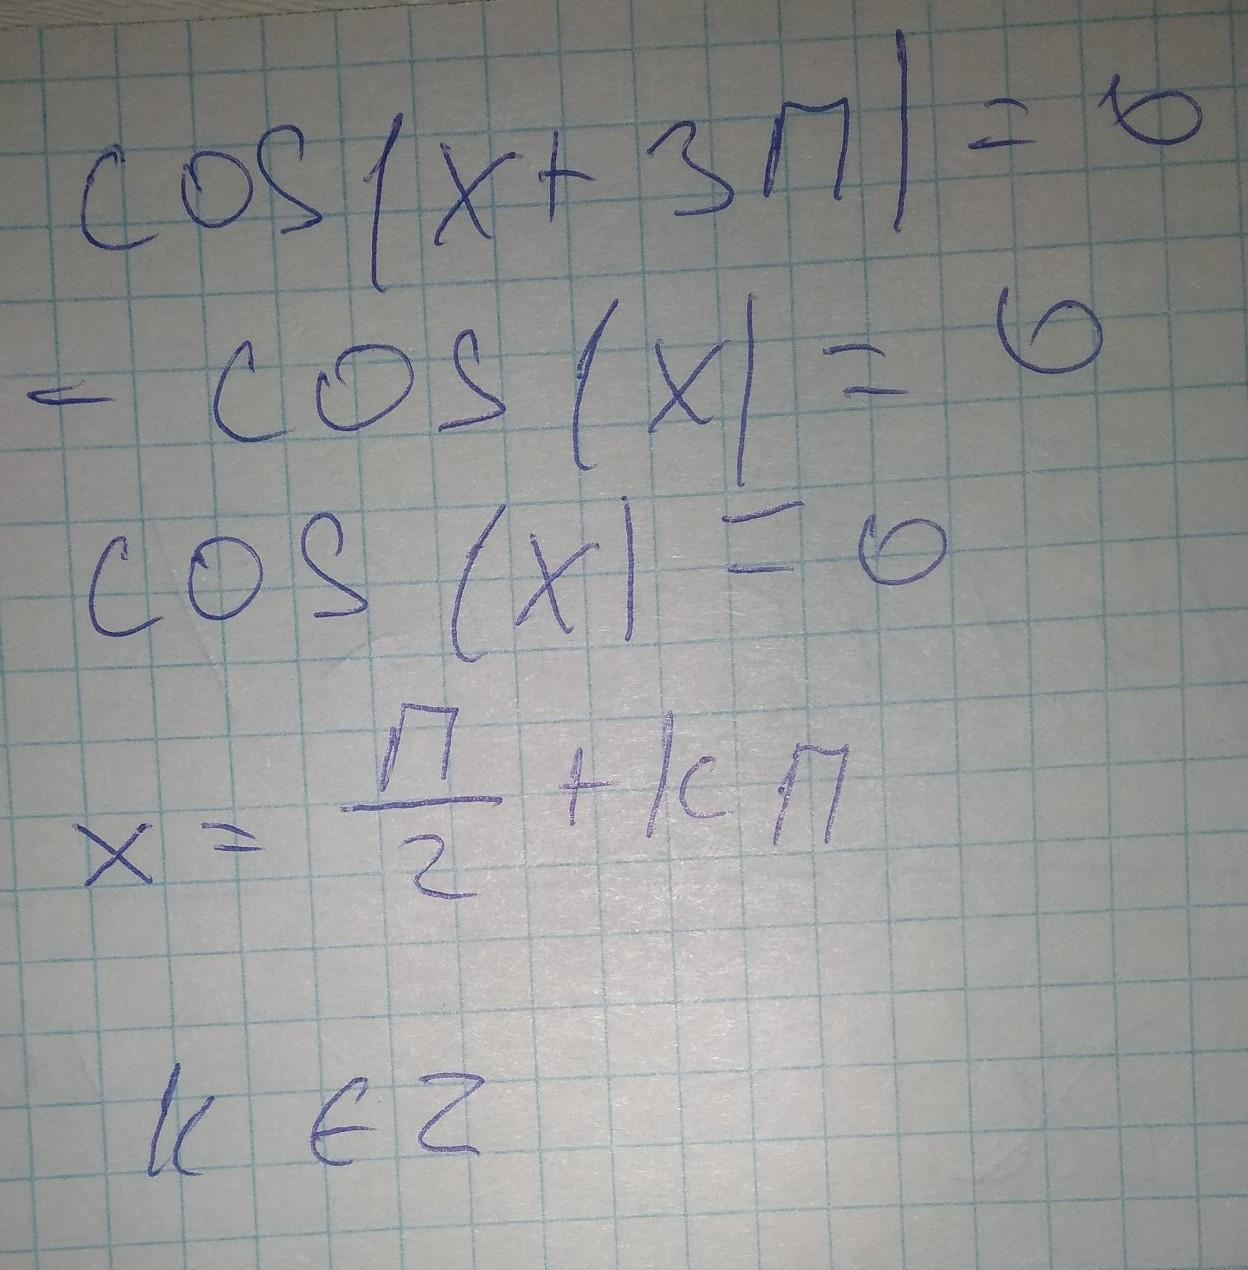 cos(x+3π)=0
-cos(x)=0
cos(x)=0
x=π/2+kπ
k∈Z